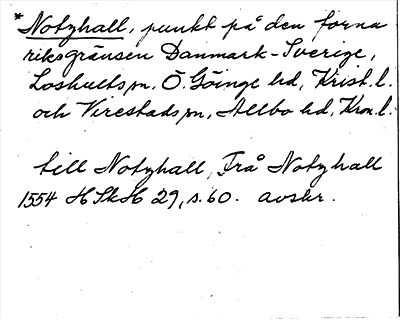 *Notzhall, punkt på den forna
riksgränsen Danmark-Sverige,
Loshults sn, Ö. Göinge hd, Krist. l.
och Virestads sn, Allbo hd, Kron. l.
till Notzhall, Frå Notzhall
1554 HSkH 29, s. 60. avskr.